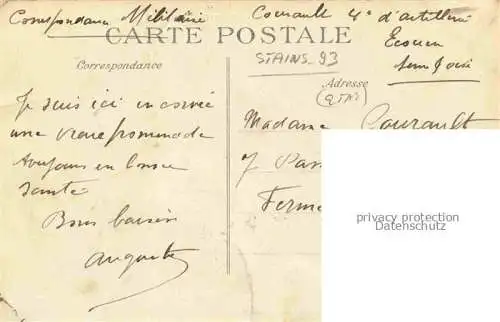 Correspondance Militaire
Courault 4e d'artillerie
Ecouen
Seine & Oise
CARTE POSTALE
STAINS_93
Correspondance
Adresse
Je suis ici en corvée
une vraie promenade
toujours en bonne
santé
Bons baisers
Auguste
Madame Courault
7 Pass
Ferme
privacy protection
Datenschutz